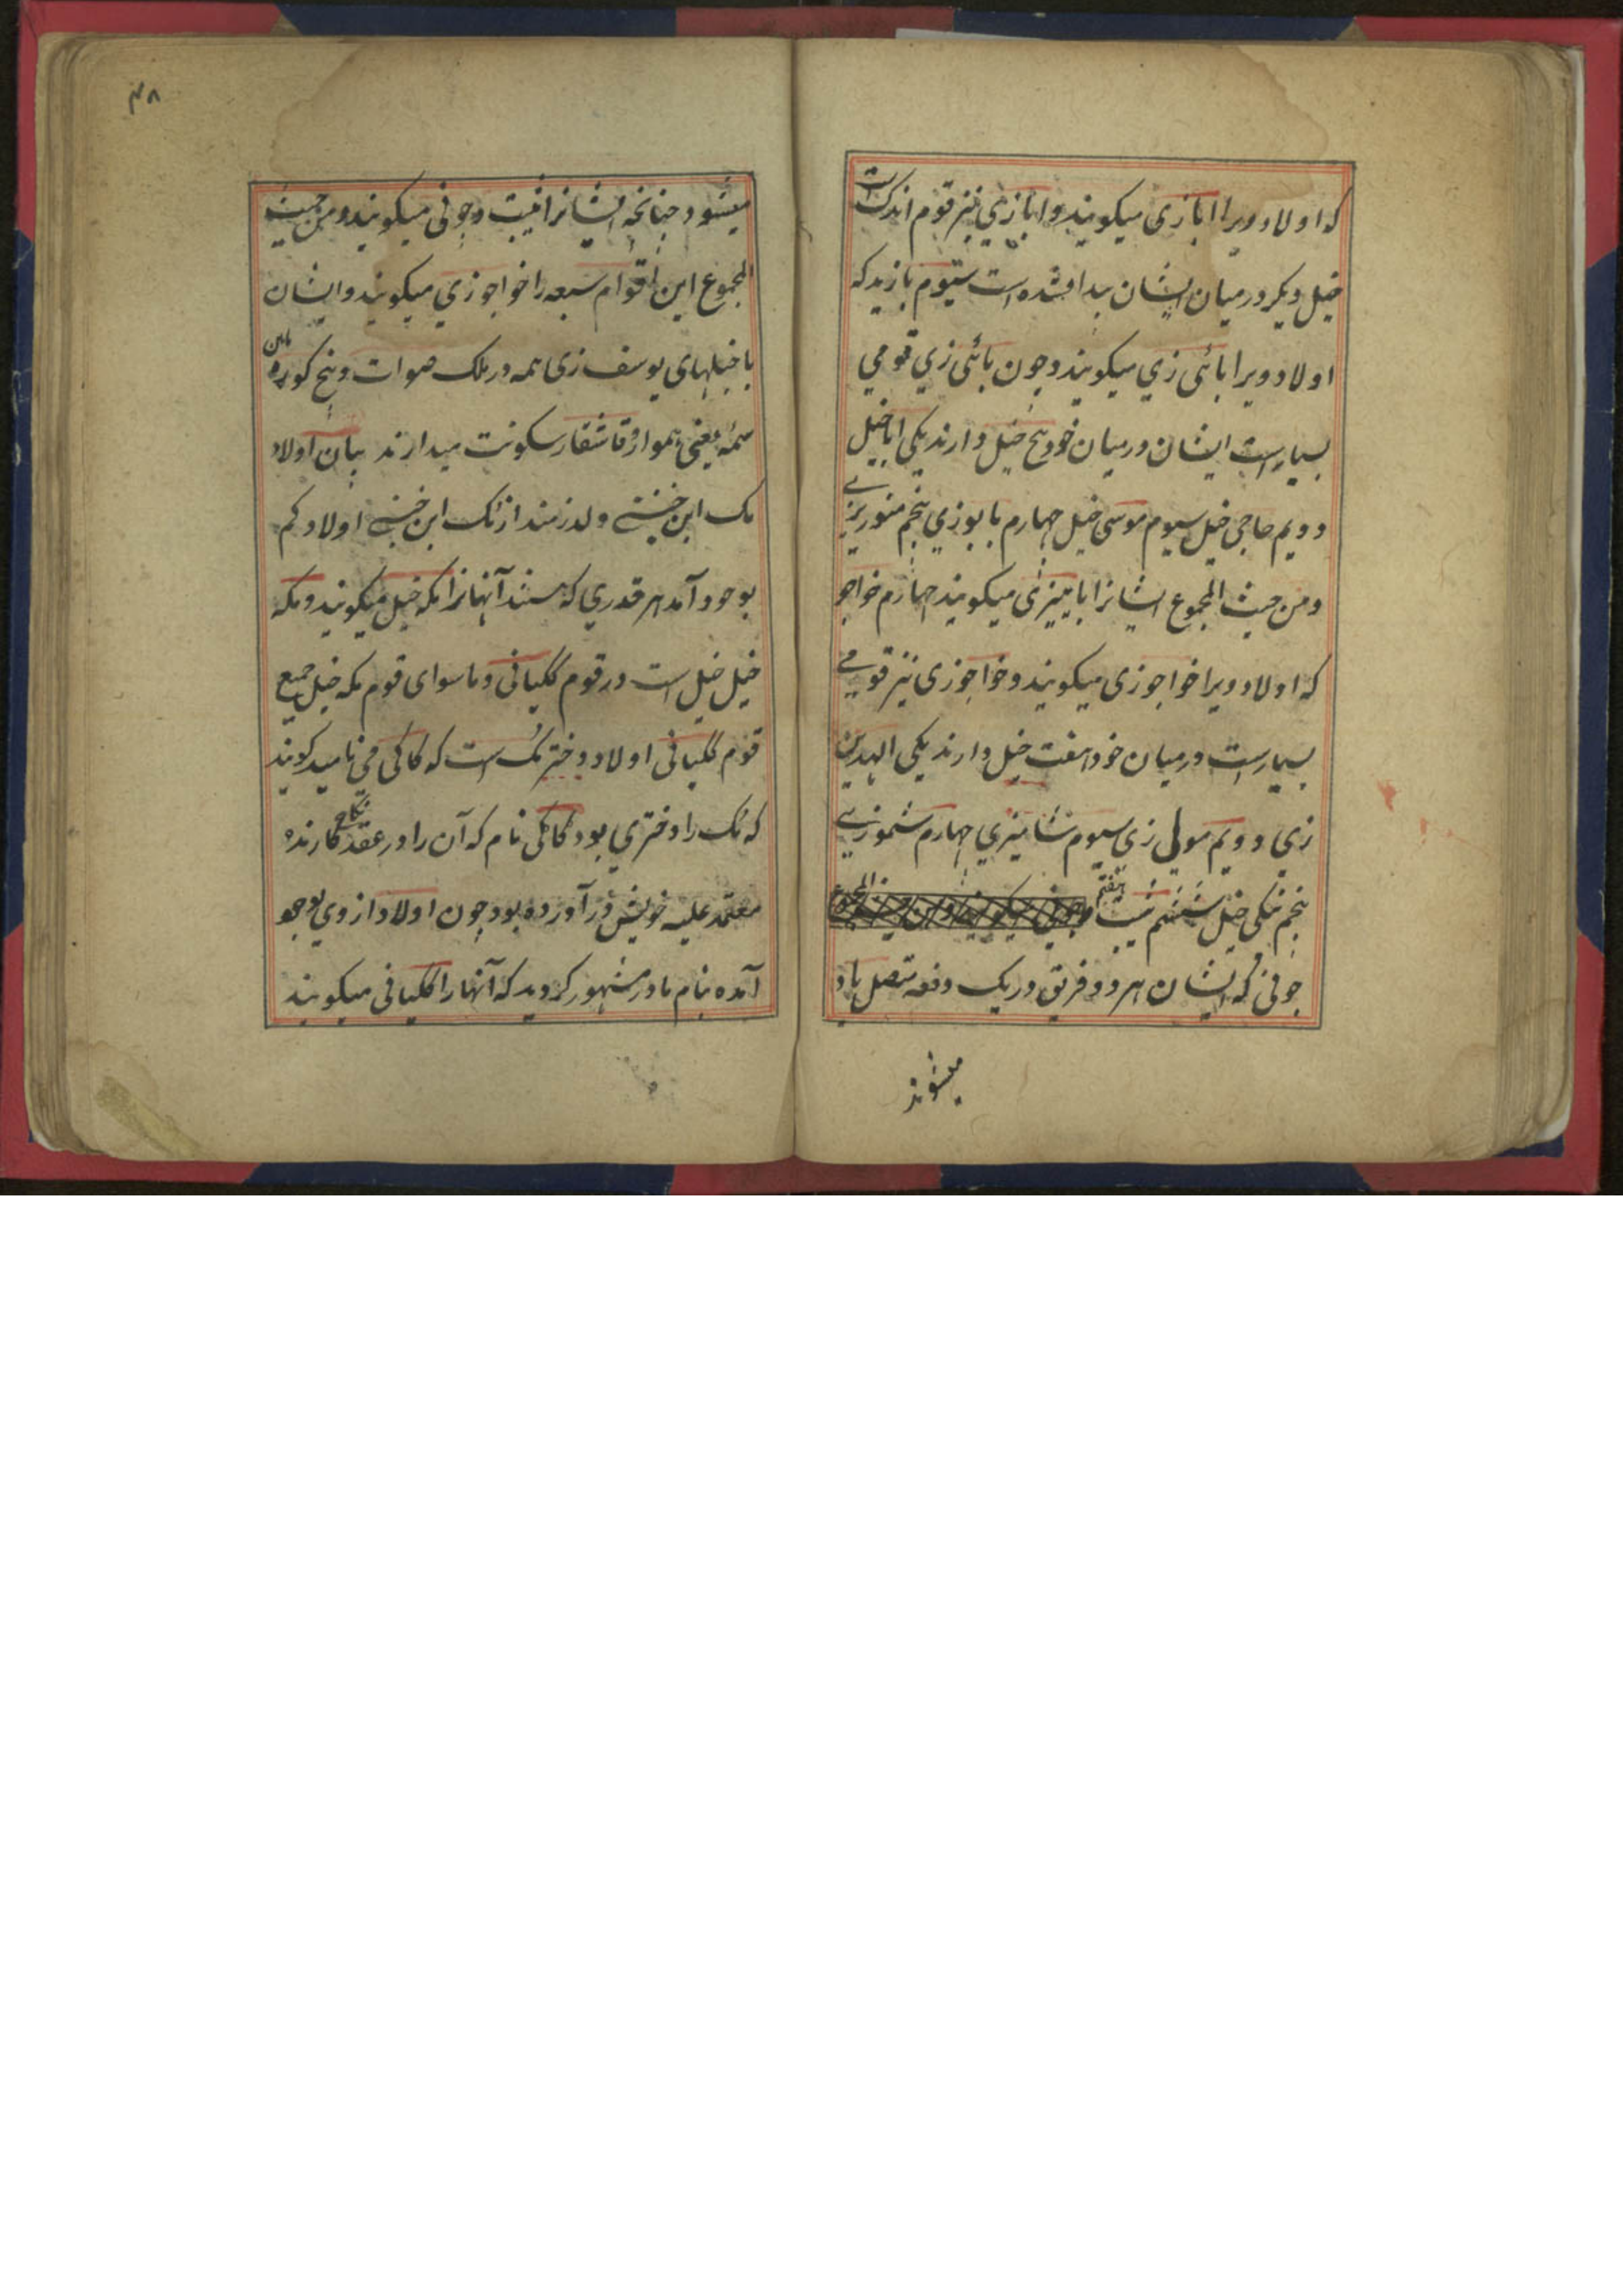 که اولاد ویرا ابازی میکویند و ابازی نیز قوم اندک است
خیل دیکر در میان ایشان پیدا شده است سیوم بازید که
اولاد ویرا بائی زی میکویند و چون بائی زی قومی
بسیارست ایشان در میان خود پنج خیل دارند یکی ابا خیل
دویم حاجی خیل سیوم موسی خیل چهارم بابوزی پنجم
و من حیث المجموع ایشانرا میکویند چهارم خواجو
که اولاد ویرا خواجوزی میکویند و خواجوزی نیز قومی
بسیارست در میان خود هفت خیل دارند یکی
زی دویم مولی زی سیوم شامیزی چهارم شموزی
پنجم نیکی خیل ششم هفتم
جونی که ایشان هر دو فریق در یک دفعه متصل یاد
میشوند
۴۸
میشود چنانچه ایشانرا و جونی میکویند و من حیث
المجموع این اقوام سبعه را خواجوزی میکویند و ایشان
با خیلهای یوسف زی همه در ملک صوات و پنج کوره
سمه یعنی هموار و قاشقار سکونت میدارند بیان اولاد
مک ابن خښی ولد رزمند از مک ابن خښی اولاد کم
بوجود آمد هر قدری که هستند آنهانرا مکه خیل میکویند و مکه
خیل خیل است در قوم ککیانی و ماسوای قوم مکه خیل جمیع
قوم ککیانی اولاد دختر مک است که کاکی می نامید کویند
که مک را دختری بود کاکی نام که آن را در عقد نکاح کارنده
معتمد علیه خویش در آورده بود چون اولاد از وی بوجو
آمده بنام مادر مشهور کردید که آنها را ککیانی میکویند